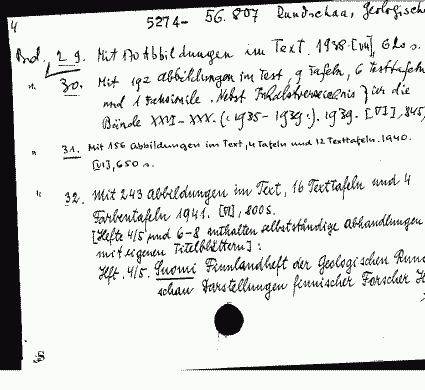 4 5274- 56.807 Rundschau, Geologische
Bd. 29. Mit 170 Abbildungen im Text. 1938. [VII], 620 s.
" 30. Mit 192 Abbildungen im Text, 9 Tafeln, 6 Texttafeln
und 1 Faksimile. Nebst Inhaltsverzeichnis für die
Bände XXVI-XXX. (1935-1939.). 1939. [VI], 845
" 31. Mit 156 Abbildungen im Text, 4 Tafeln und 12 Texttafeln. 1940.
[VI], 650 s.
" 32. Mit 243 Abbildungen im Text, 16 Texttafeln und 4
Farbentafeln 1941. [VI], 800 S.
[Hefte 4/5 und 6-8 enthalten selbstständige Abhandlungen
mit eigenen Titelblättern]:
Heft. 4/5. Suomi Finnlandheft der Geologischen Rund
schau Darstellungen finnischer Forscher H